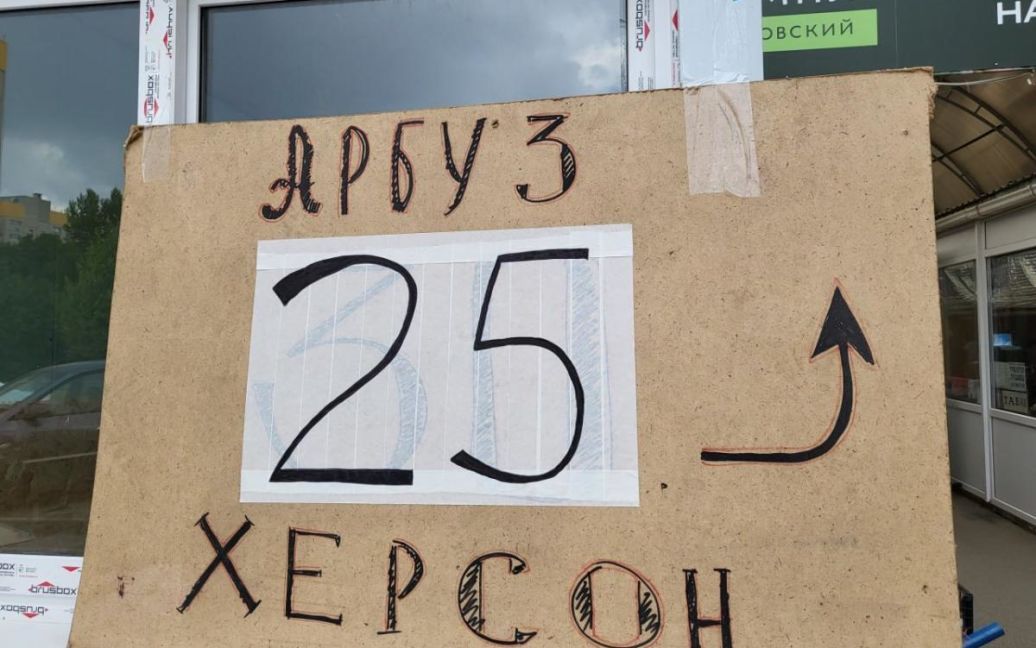 ОВСКИЙ
НА
АРБУЗ
25
ХЕРСОН
brusbox
brusbox
brusbox
brusbox